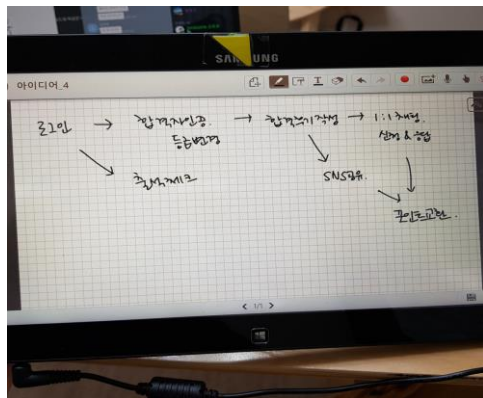 SAMSUNG
아이디어_4
로그인 → 합격자인증 → 합격후기작성 → 1:1채팅
등급변경
신청 & 응답
출석체크
SNS공유.
포인트교환.
1/1